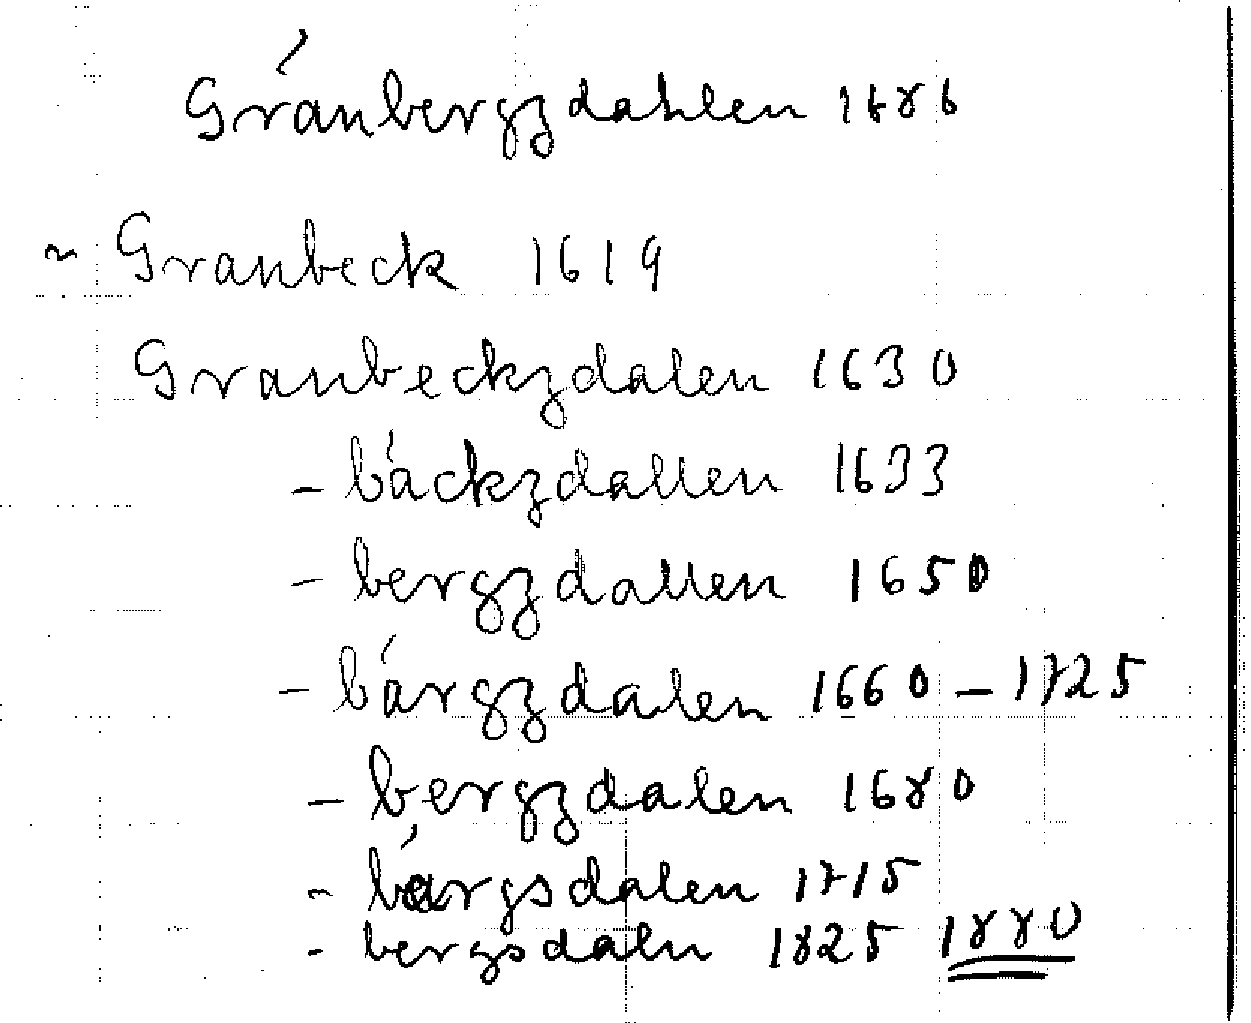 Gránbergzdahlen 1686
~ Granbeck 1619
Granbeckzdalen 1630
- báckzdallen 1633
- bergzdallen 1650
- bárgzdalen 1660 - 1725
- bergzdalen 1680
- bárgsdalen 1715
- bergsdaln 1825 1880